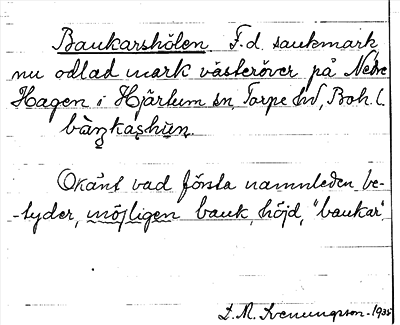 Baukarshölen F.d. sankmark
nu odlad mark västeröver på Nedre
Hagen i Hjärtum sn, Torpe hd, Boh. l.
bàu̯kas̥hu̥n.
Okänt vad första namnleden be-
-tyder, möjligen bauk, höjd, "baukar".
D. M. Svenungsson - 1935